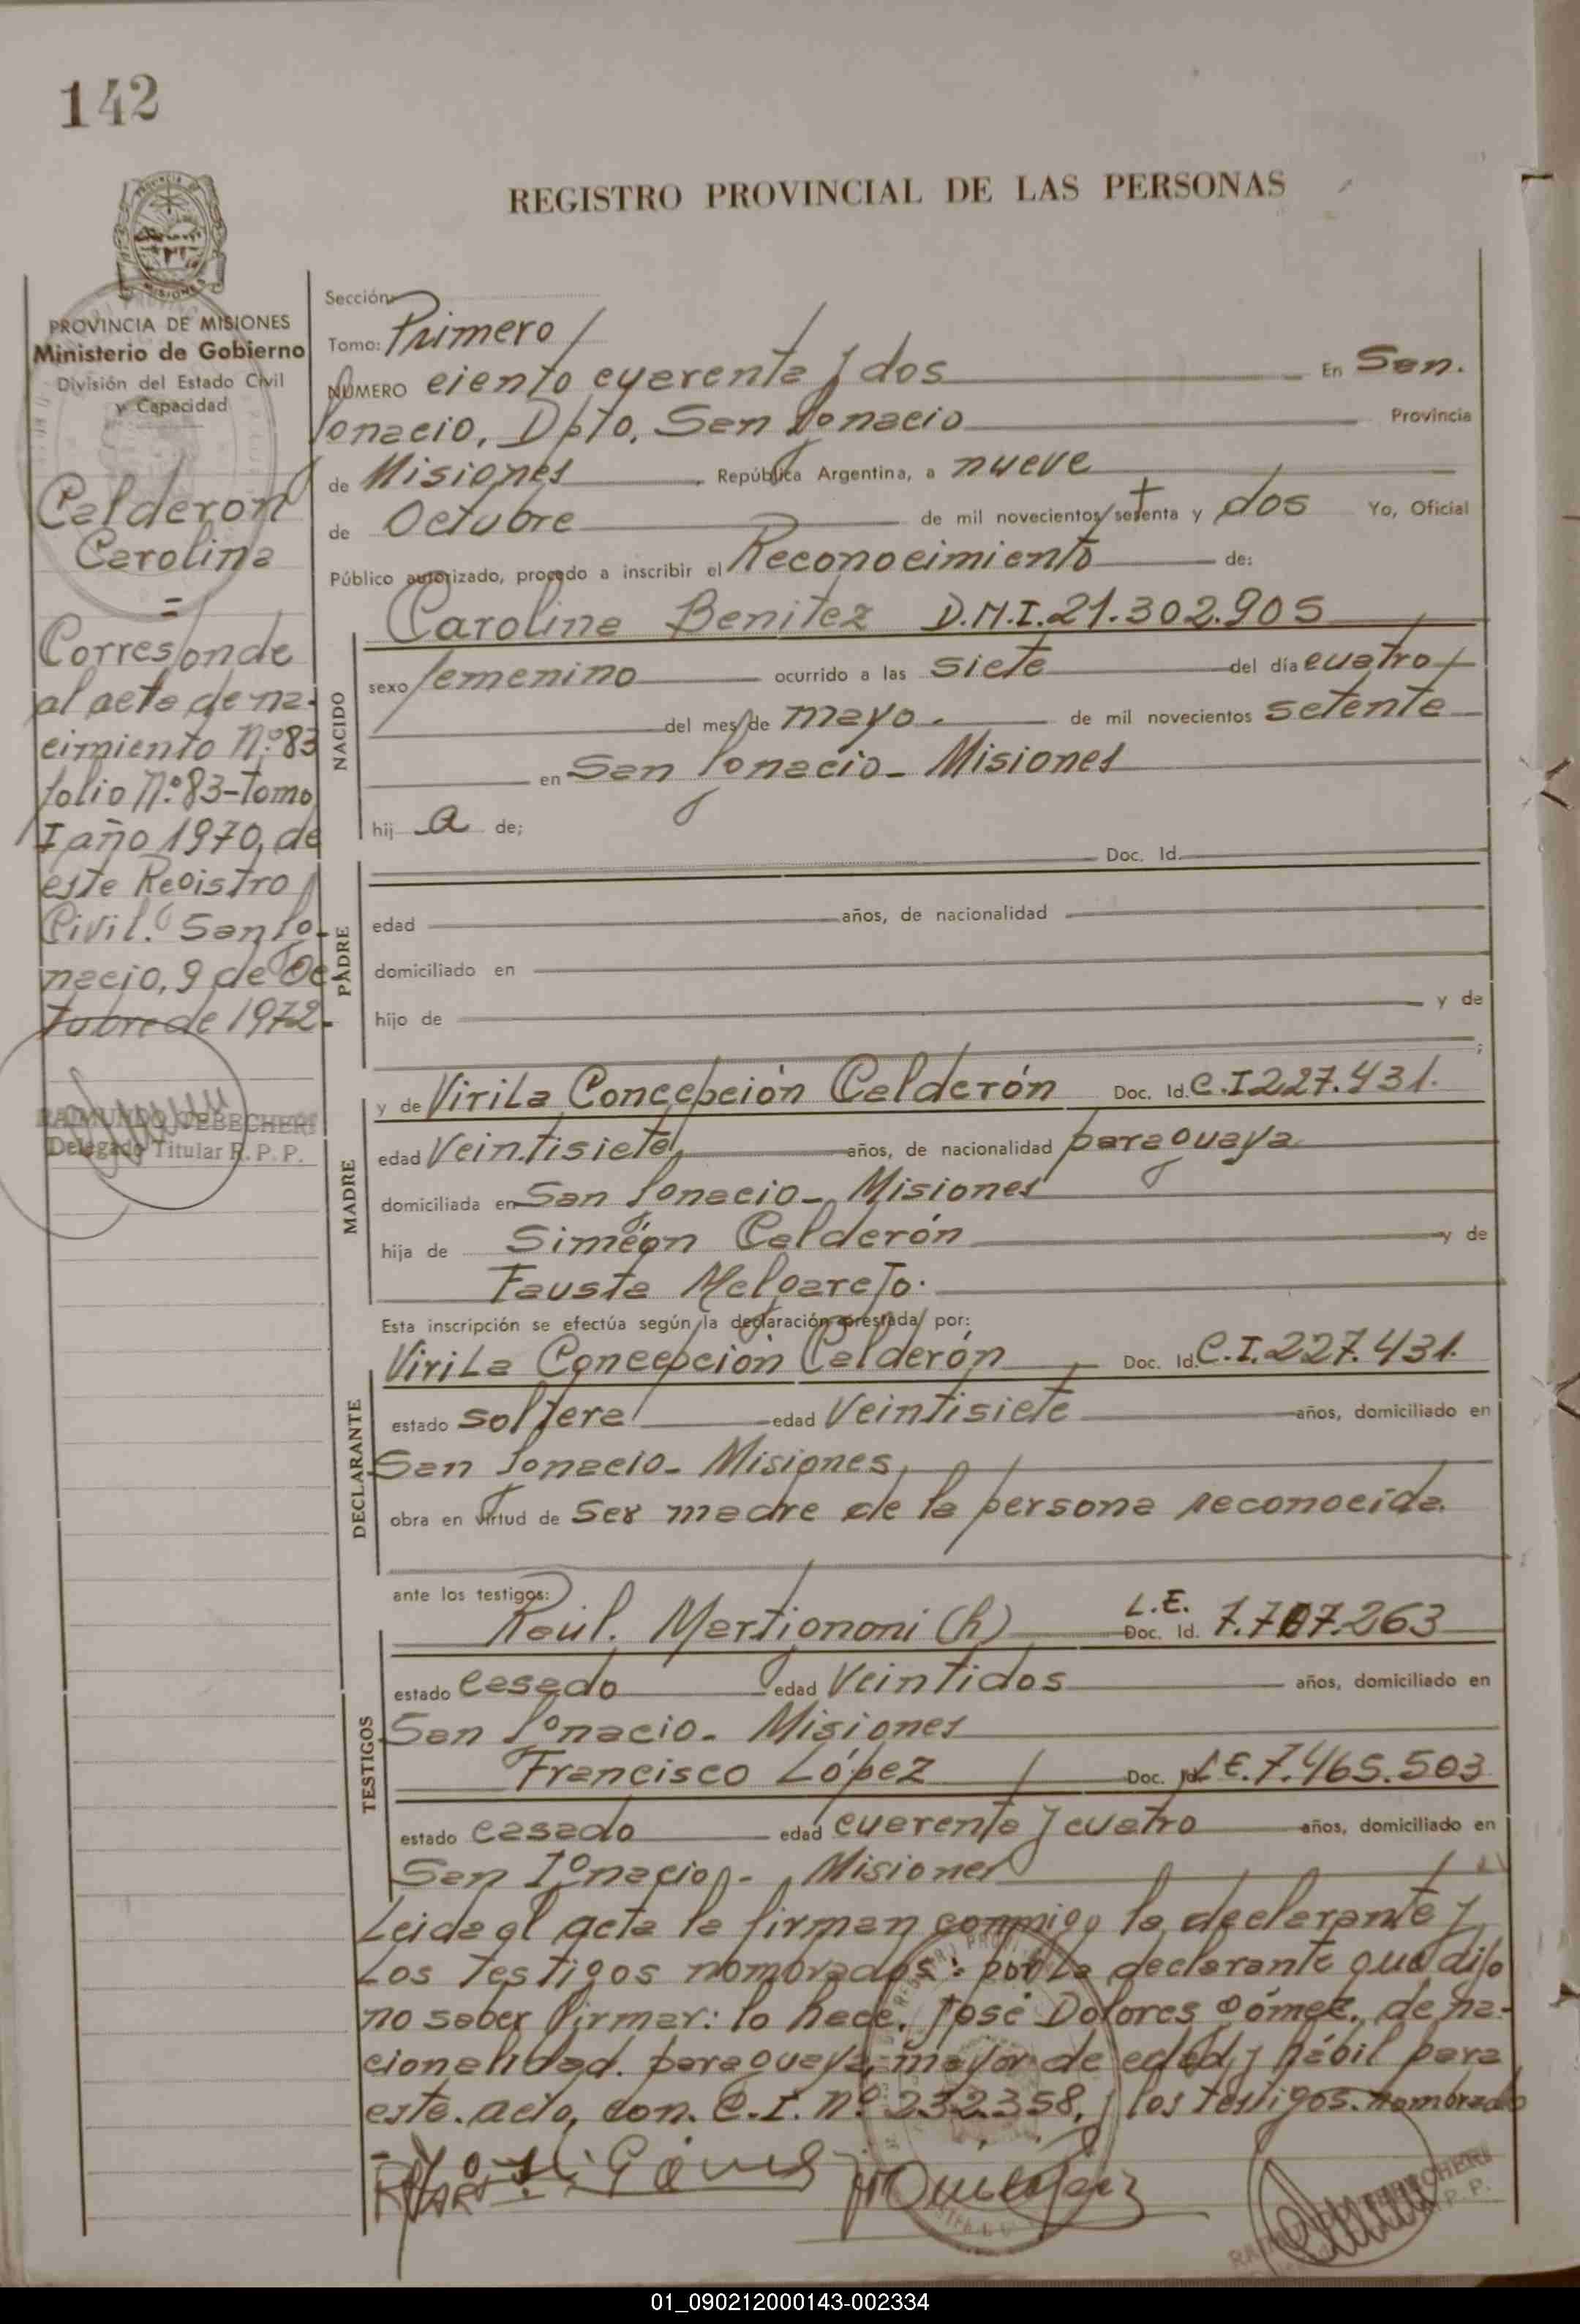 142
REGISTRO PROVINCIAL DE LAS PERSONAS
PROVINCIA DE MISIONES
Ministerio de Gobierno
División del Estado Civil
y Capacidad
Calderon
Carolina
=
Corresponde
al acta de na-
cimiento N.º 83
folio N.º 83-Tomo
I año 1970, de
este Registro
Civil. San Ig-
nacio, 9 de Oc-
tubre de 1972-
RAIMUNDO
Delegado Titular R. P. P.
Sección:
Tomo: Primero
NÚMERO ciento cuarenta y dos En San.
Ignacio, Dpto, San Ignacio Provincia
de Misiones República Argentina, a nueve
de Octubre de mil novecientos setenta y dos Yo, Oficial
Público autorizado, procedo a inscribir el Reconocimiento de:
Carolina Benitez D.N.I. 21.302.905
NACIDO
sexo femenino ocurrido a las siete del día cuatro
del mes de mayo. de mil novecientos setenta
en San Ignacio- Misiones
hij a de;
PADRE
Doc. Id.
edad años, de nacionalidad
domiciliado en
hijo de y de
;
MADRE
y de Virila Concepción Calderón Doc. Id. C.I 227.431.
edad Veintisiete años, de nacionalidad paraguaya
domiciliada en San Ignacio- Misiones
hija de Simeón Calderón y de
Fausta Melgarejo.
Esta inscripción se efectúa según la declaración prestada por:
DECLARANTE
Virila Concepción Calderón Doc. Id. C.I. 227.431.
estado soltera edad Veintisiete años, domiciliado en
San Ignacio- Misiones
obra en virtud de ser madre de la persona reconocida.
ante los testigos:
TESTIGOS
Raúl. Martignoni (h) L.E. Doc. Id. 7.707.263
estado casado edad Veintidos años, domiciliado en
San Ignacio- Misiones
Francisco López Doc. Id. L.E. 7.465.503
estado casado edad cuarenta y cuatro años, domiciliado en
San Ignacio- Misiones
Leida el acta la firman conmigo la declarante y
los testigos nombrados: por la declarante que dijo
no saber firmar: lo hace. José Dolores Gómez, de na-
cionalidad. paraguaya, mayor de edad y hábil para
este. acto, con. C.I. Nº 232.358, y los testigos. nombrado
01_090212000143-002334